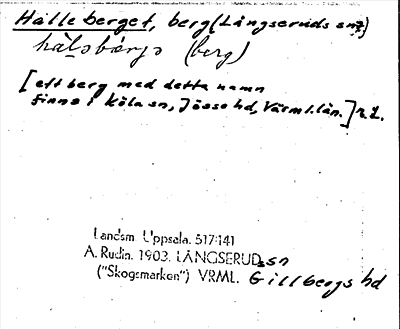 Hälleberget, berg (Långseruds sn?)
hälsbärjə (berg)
[ett berg med detta namn
finns i Köla sn, Jösse hd, Värml. län.] R.L.
Landsm. Uppsala. 517:141
A. Rudin. 1903. LÅNGSERUDs sn
("Skogsmarken") VRML. Gillbergs hd